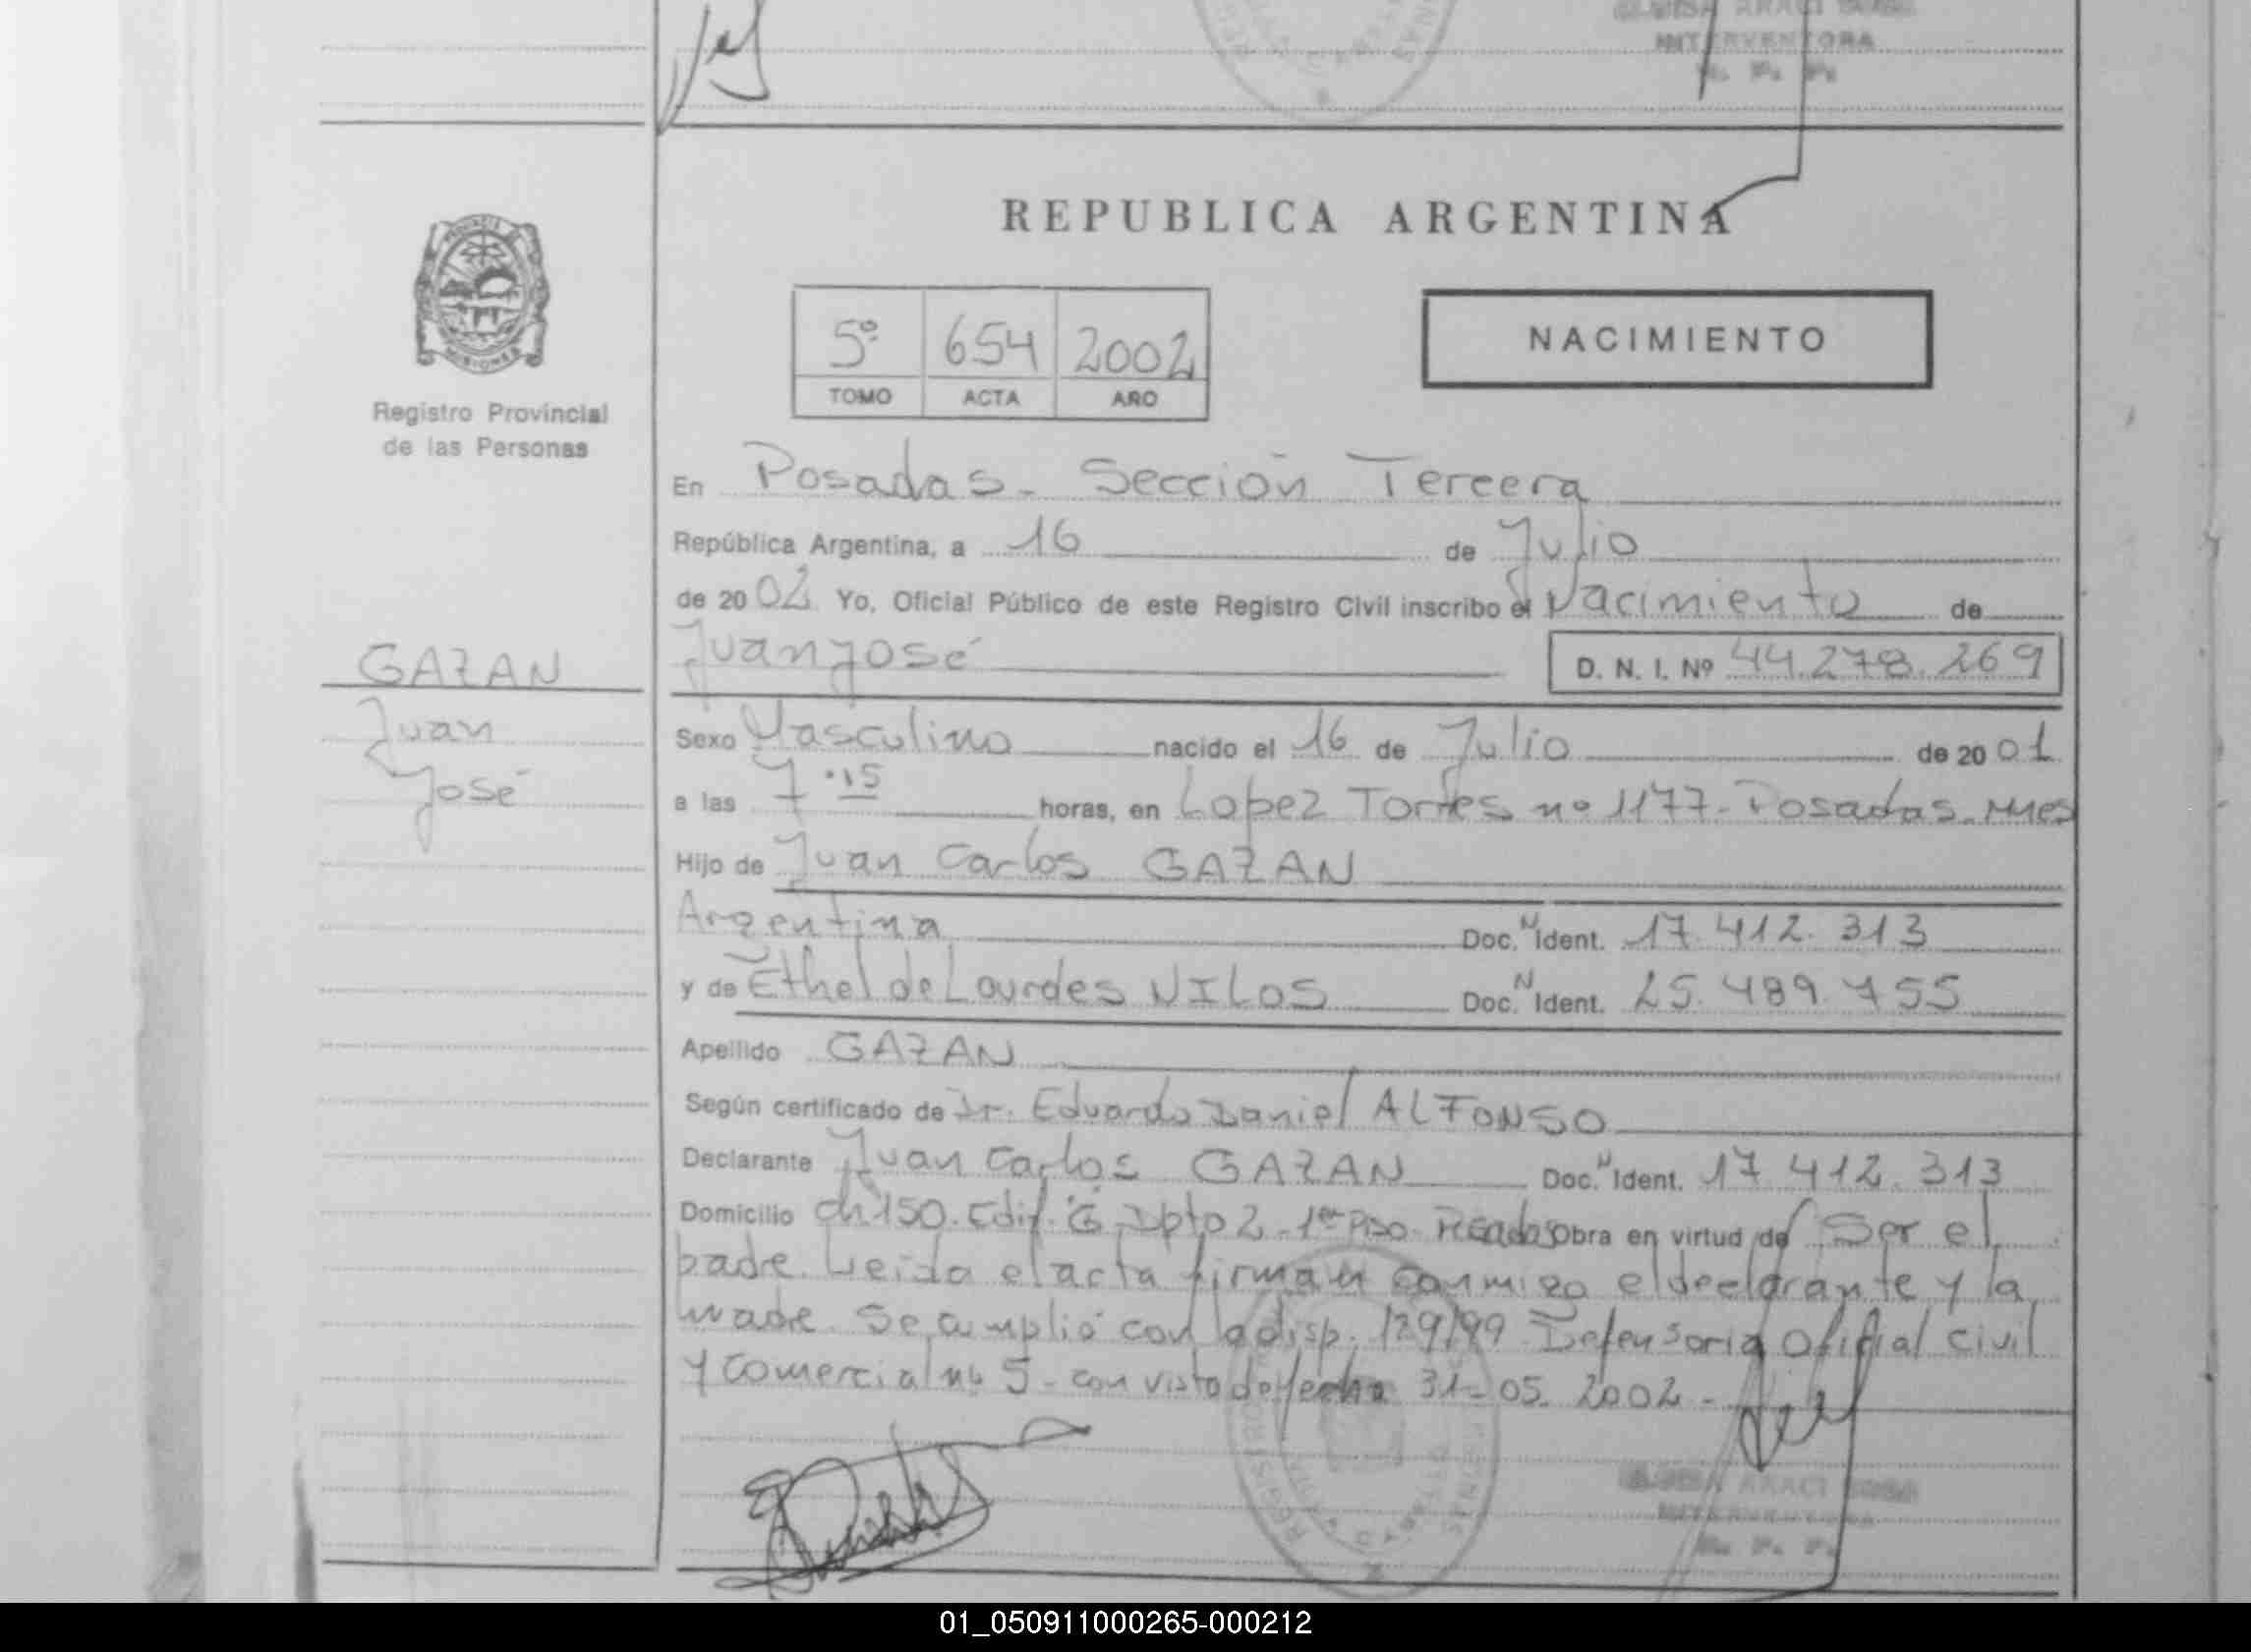 INTERVENTORA
REPUBLICA ARGENTINA
5º 654 2002
TOMO ACTA AÑO
NACIMIENTO
MISIONES
Registro Provincial
de las Personas
En Posadas - Sección Tercera
República Argentina, a 16 de Julio
de 2002 Yo, Oficial Público de este Registro Civil inscribo el Nacimiento de
GAZAN
Juan José D. N. I. Nº 44.278.269
Juan
José
Sexo Masculino nacido el 16 de Julio de 2001
a las 7.15 horas, en Lopez Torres nº 1177 - Posadas. Mnes
Hijo de Juan Carlos GAZAN
Argentina Doc. N Ident. 17.412.313
y de Ethel de Lourdes NILOS Doc. N Ident. 25.489.755
Apellido GAZAN
Según certificado de Dr. Eduardo Daniel ALFONSO
Declarante Juan Carlos GAZAN Doc. N Ident. 17.412.313
Domicilio ch 150. Edif. G Dpto 2 - 1er Piso - Posadas obra en virtud de Ser el
padre. Leida el acta firman conmigo el declarante y la
madre. Se cumplió con la disp. 129/99 Defensoria Oficial Civil
y Comercial nº 5 - con visto de fecha 31-05.2002 -
ARACI SOSA
INTERVENTORA
R. P. P.
01_050911000265-000212